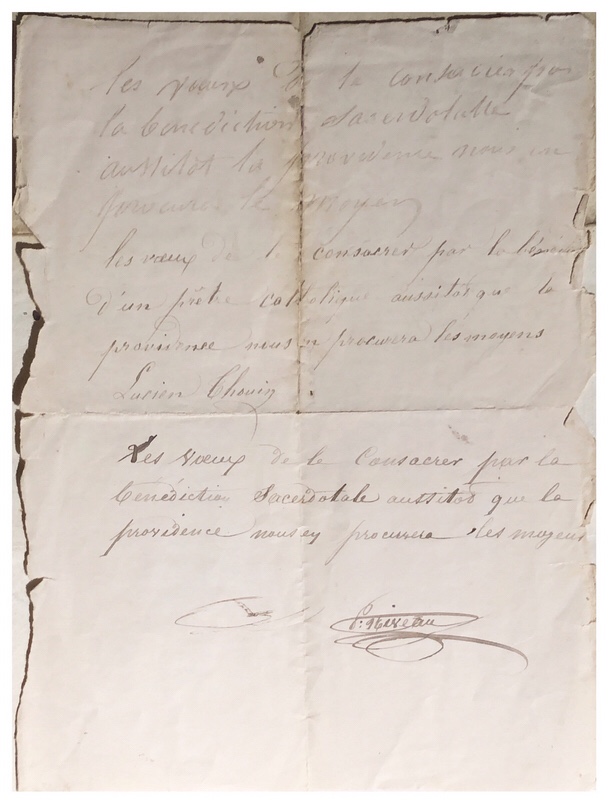 les vœux de le consacrer par
la bénédiction Sacerdotalle
aussitot la providence nous en
procurera le moyen
les vœux de le consacrer par la
d'un prêtre catholique aussitôt que la
providence nous en procurera les moyens
Lucien Chouin
Les vœux de le Consacrer par la
bénédiction Sacerdotale aussitôt que la
providence nous en procurera les moyens